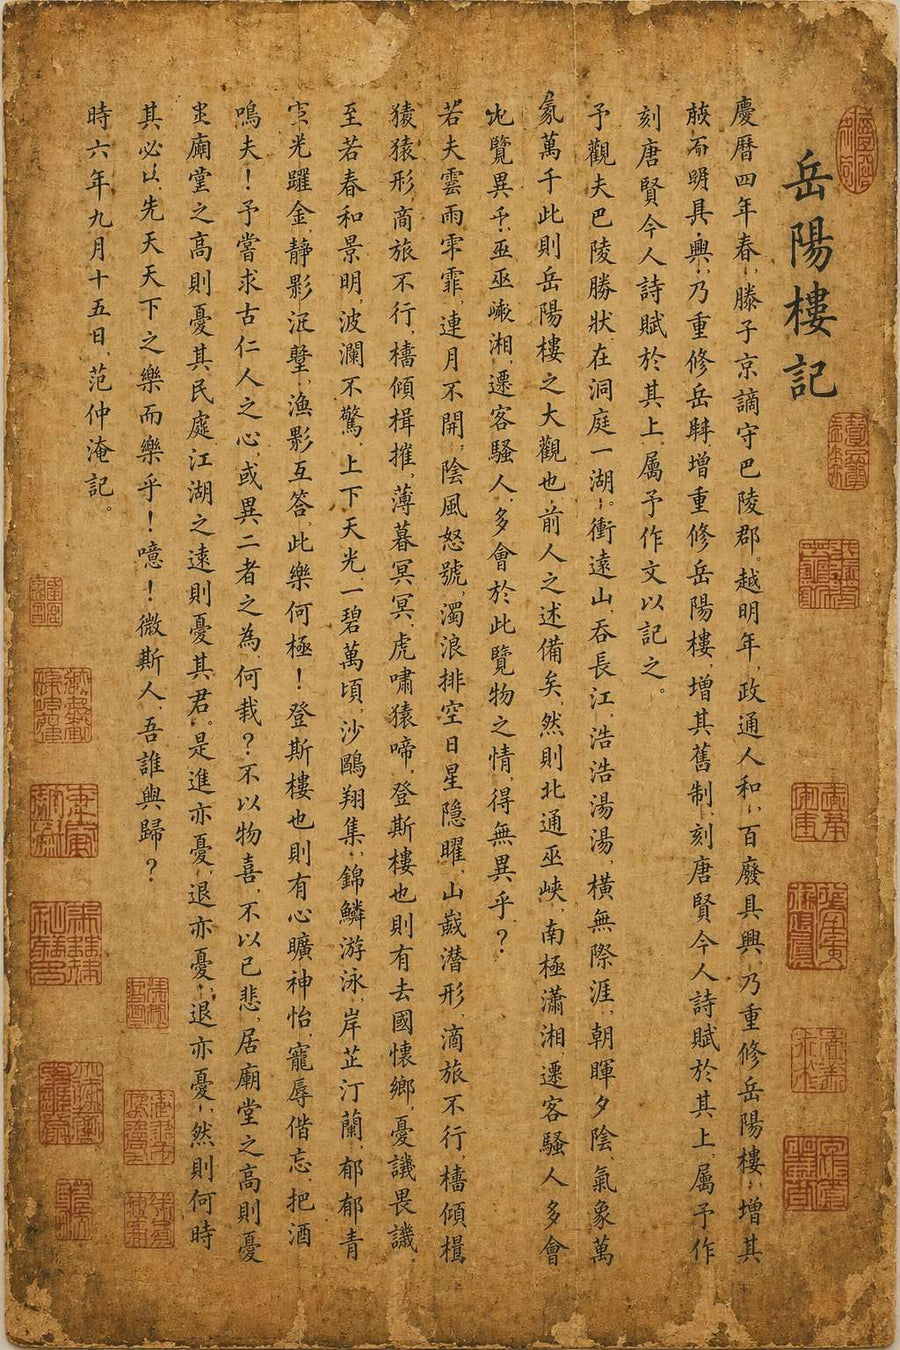 岳陽樓記
慶曆四年春,滕子京謫守巴陵郡。越明年,政通人和,百廢具興,乃重修岳陽樓,增其
而明具興,乃重修岳增重修岳陽樓,增其舊制,刻唐賢今人詩賦於其上,屬予作
刻唐賢今人詩賦於其上,屬予作文以記之。
予觀夫巴陵勝狀,在洞庭一湖。衝遠山,吞長江,浩浩湯湯,橫無際涯,朝暉夕陰,氣象萬
萬千此則岳陽樓之大觀也,前人之述備矣,然則北通巫峽,南極瀟湘,遷客騷人多會
覽異予巫巫湘,遷客騷人,多會於此覽物之情,得無異乎?
若夫雲雨霏,連月不開,陰風怒號,濁浪排空日星隱曜,山潛形,滴旅不行,檣傾楫
猿形,商旅不行,檣傾楫摧,薄暮冥冥,虎嘯猿啼,登斯樓也則有去國懷鄉,憂譏畏譏
至若春和景明,波瀾不驚,上下天光,一碧萬頃,沙鷗翔集,錦鱗游泳,岸芷汀蘭,郁郁青
光躍金,靜影,漁影互答,此樂何極!登斯樓也則有心曠神怡,寵辱偕忘,把酒
鳴夫!予嘗求古仁人之心,或異二者之為,何哉?不以物喜,不以己悲,居廟堂之高則憂
廟堂之高則憂其民處江湖之遠則憂其君。是進亦憂,退亦憂,退亦憂,然則何時
其必以先天天下之樂而樂乎!噫!微斯人,吾誰與歸?
時六年九月十五日,范仲淹記。